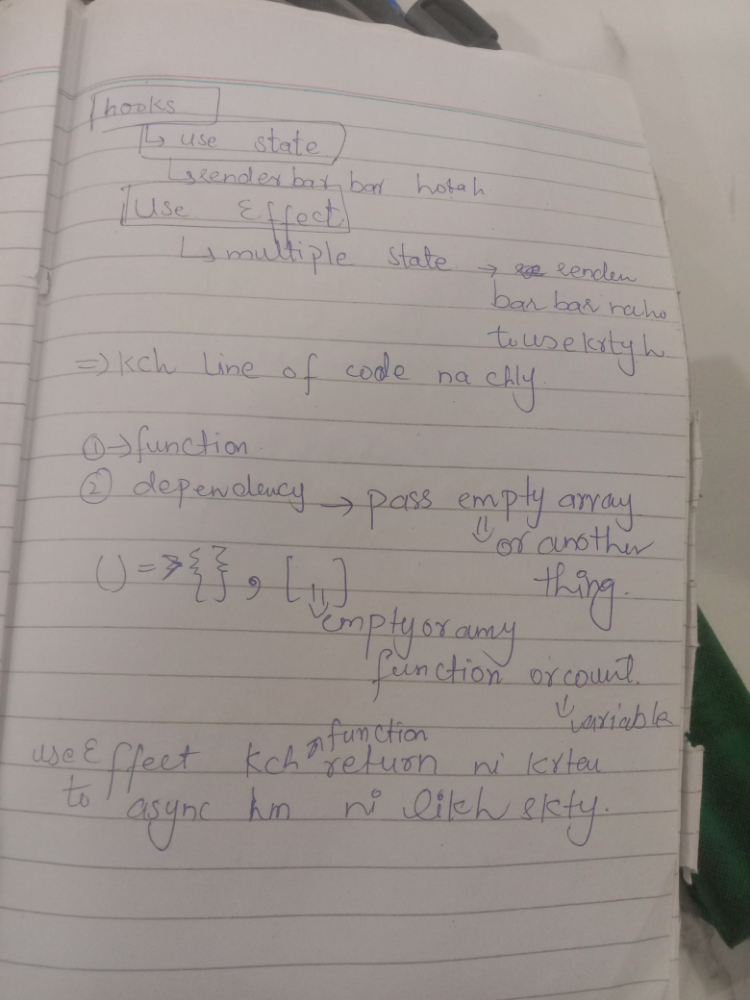 hooks
↳ use state
↳ render bar bar hotah
Use Effect
↳ multiple state → render
bar bar naho
to use krty h
⇒ kch line of code na chly
① → function
② dependency → pass empty array
⇓ or another
thing.
() => {} , [ ]
⇓ empty or any
function or count.
⇓ variable
function
useEffect kch return ni krta
to async hm ni likh skty.